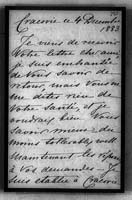 Cracovie ce 4 Décembre
1883
Je viens de recevoir
Votre lettre cher ami,
je suis enchantée
de Vous savoir de
retour, mais Vous ne
dites rien de Votre
santé, et je
voudrais bien Vous
savoir mieux - du
moins tolerably well
Maintenant les réponses
à vos demandes - Je
suis établie à Cracovie